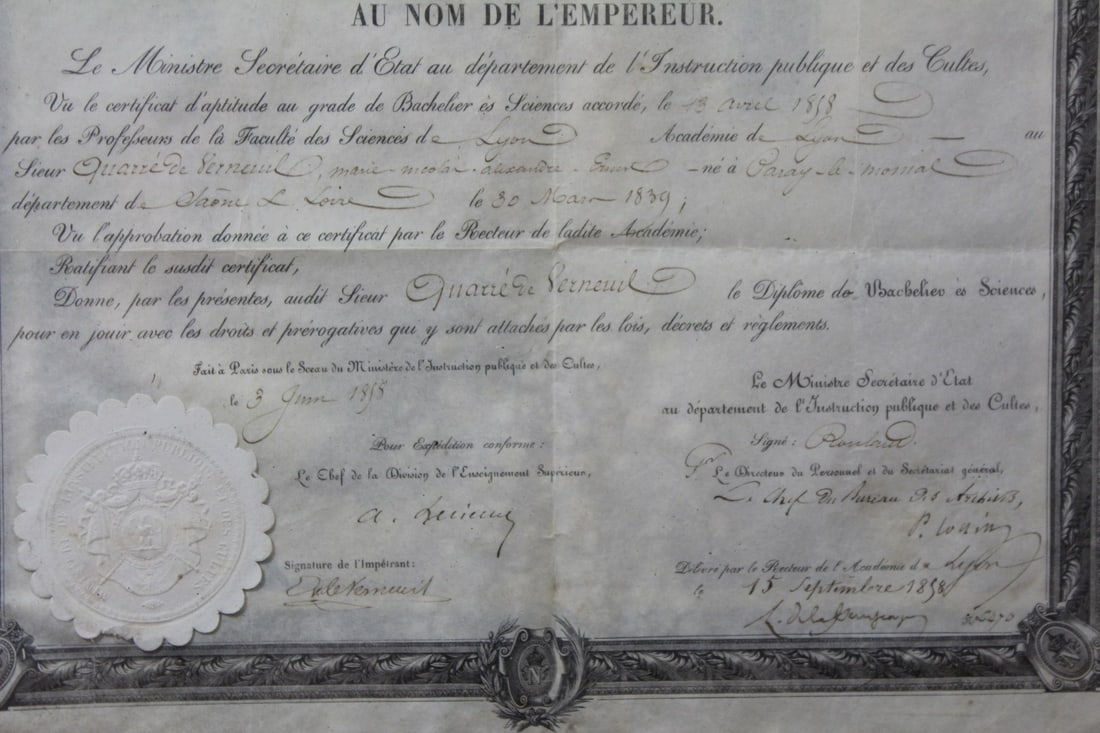 AU NOM DE L'EMPEREUR.
Le Ministre Secrétaire d'Etat au département de l'Instruction publique et des Cultes,
Vu le certificat d'aptitude au grade de Bachelier ès Sciences accordé, le 13 avril 1858
par les Professeurs de la Faculté des Sciences de Lyon Académie de Lyon — au
Sieur Quarré de Verneuil, marie-nicolas-alexandre- - né à Paray-le-monial
département de Saône & Loire le 30 Mars 1839;
Vu l'approbation donnée à ce certificat par le Recteur de ladite Académie;
Ratifiant le susdit certificat,
Donne, par les présentes, audit Sieur Quarré de Verneuil le Diplôme de Bachelier ès Sciences,
pour en jouir avec les droits et prérogatives qui y sont attachés par les lois, décrets et règlements.
Fait à Paris sous le Sceau du Ministère de l'Instruction publique et des Cultes,
le 3 Juin 1858
Le Ministre Secrétaire d'Etat
au département de l'Instruction publique et des Cultes,
Signé: Rouland.
Pour Expédition conforme:
Le Chef de la Division de l'Enseignement Supérieur,
Pr Le Directeur du Personnel et du Secrétariat général,
Le Chef du Bureau des Archives,
Signature de l'Impétrant:
de Verneuil
Délivré par le Recteur de l'Académie de Lyon
le 15 Septembre 1858
N